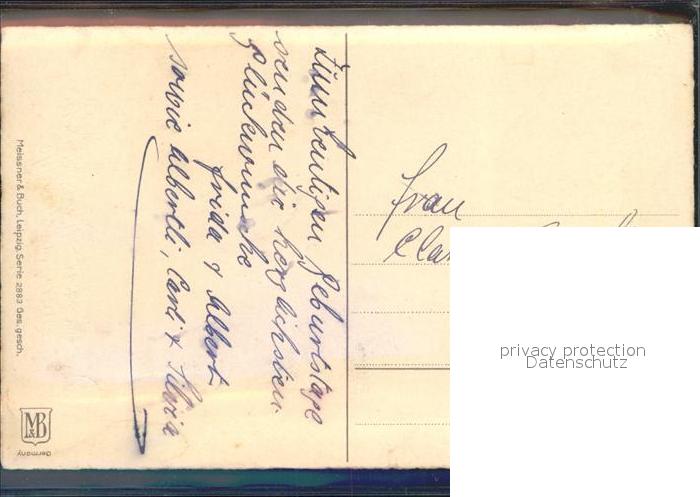 Zum heutigen Geburtstage
senden dir herzlichsten
Glückwünsche
Frida & Albert
sowie Albertli, Carli & Silvia
Frau
Meissner & Buch, Leipzig. Serie 2883 Ges. gesch.
M&B
Germany
privacy protection
Datenschutz